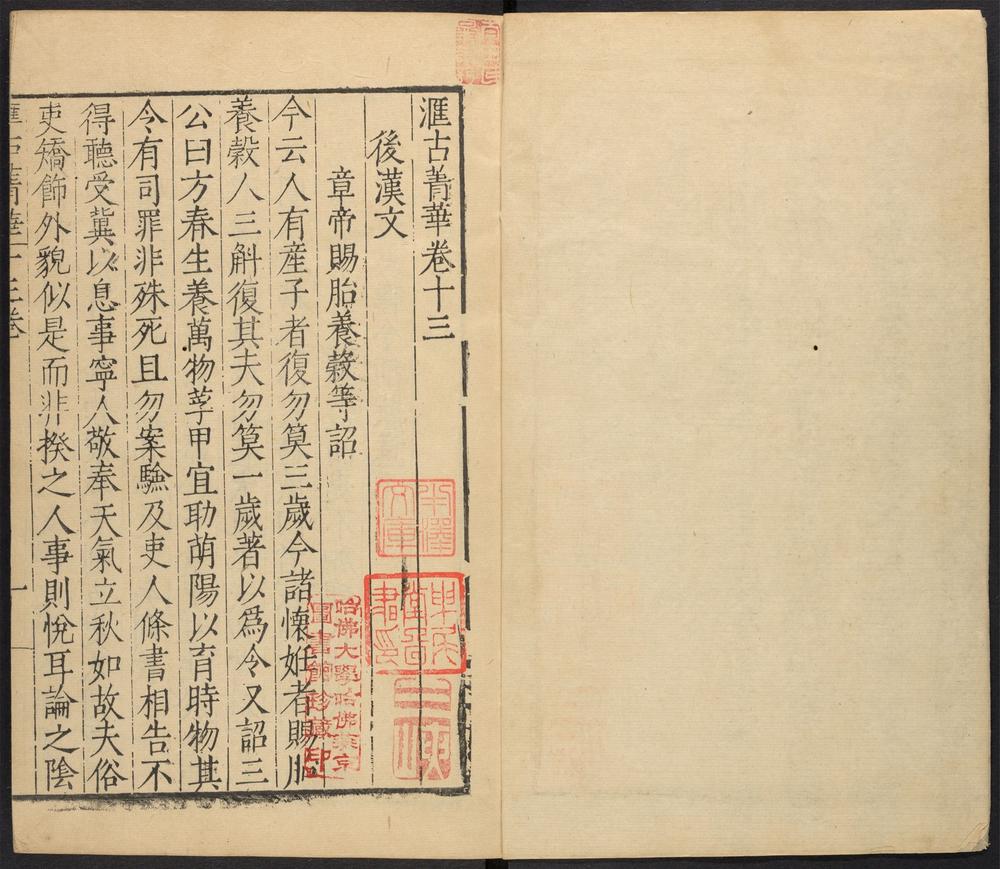 滙古菁華卷十三
後漢文
章帝賜胎養穀等詔
今云人有産子者復勿筭三歲今諸懷姙者賜胎
養穀人三斛復其夫勿筭一歲著以爲令又詔三
公曰方春生養萬物莩甲宜助萌陽以育時物其
令有司罪非殊死且勿案驗及吏人條書相告不
得聽受冀以息事寧人敬奉天氣立秋如故夫俗
吏矯飾外貌似是而非揆之人事則悅耳論之陰
滙古菁華十三卷
一
哈佛大學哈佛燕京
圖書館珍藏印